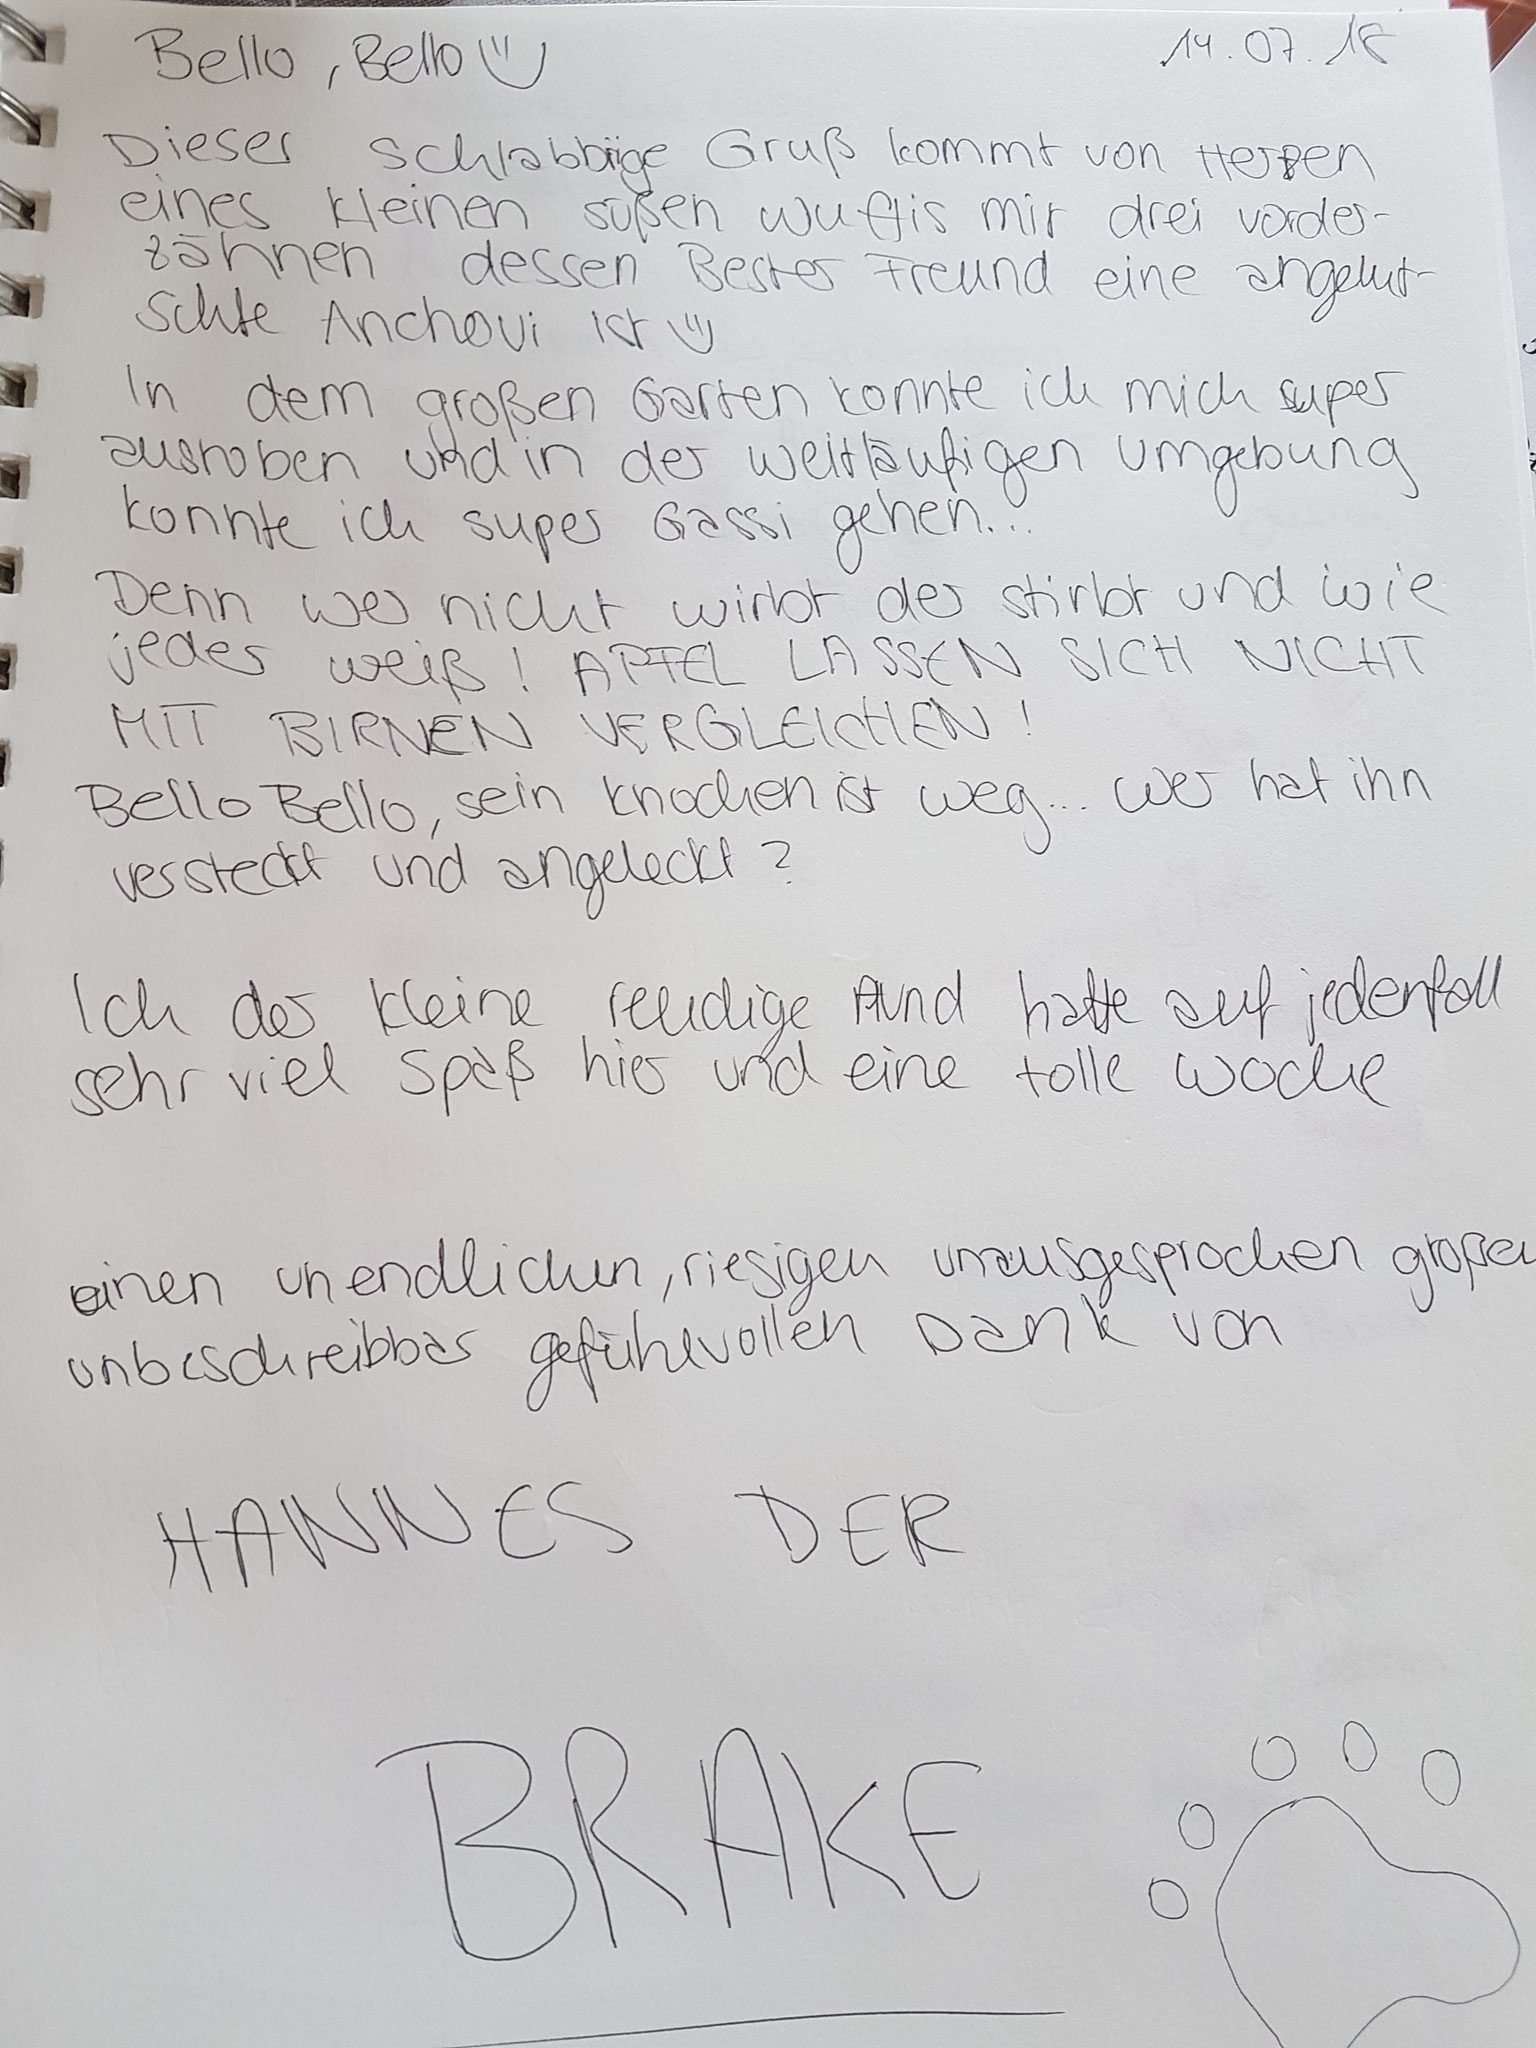 Bello, Bello 14.07.18
Dieser schlabbrige Gruß kommt von Herzen
eines kleinen süßen Wuffis mit drei vorder-
zähnen dessen Bester Freund eine angelut-
schte Anchovi ist
In dem großen Garten konnte ich mich super
austoben und in der weitläufigen Umgebung
konnte ich super Gassi gehen...
Denn wer nicht wirbt der stirbt und wie
jeder weiß! ÄPFEL LASSEN SICH NICHT
MIT BIRNEN VERGLEICHEN!
Bello Bello, sein Knochen ist weg... wer hat ihn
versteckt und angeleckt?
Ich der kleine reudige Hund hatte auf jedenfall
sehr viel Spaß hier und eine tolle Woche
einen unendlichen, riesigen unausgesprochen großen
unbeschreibbar gefühlvollen Dank von
HANNES DER
BRAKE